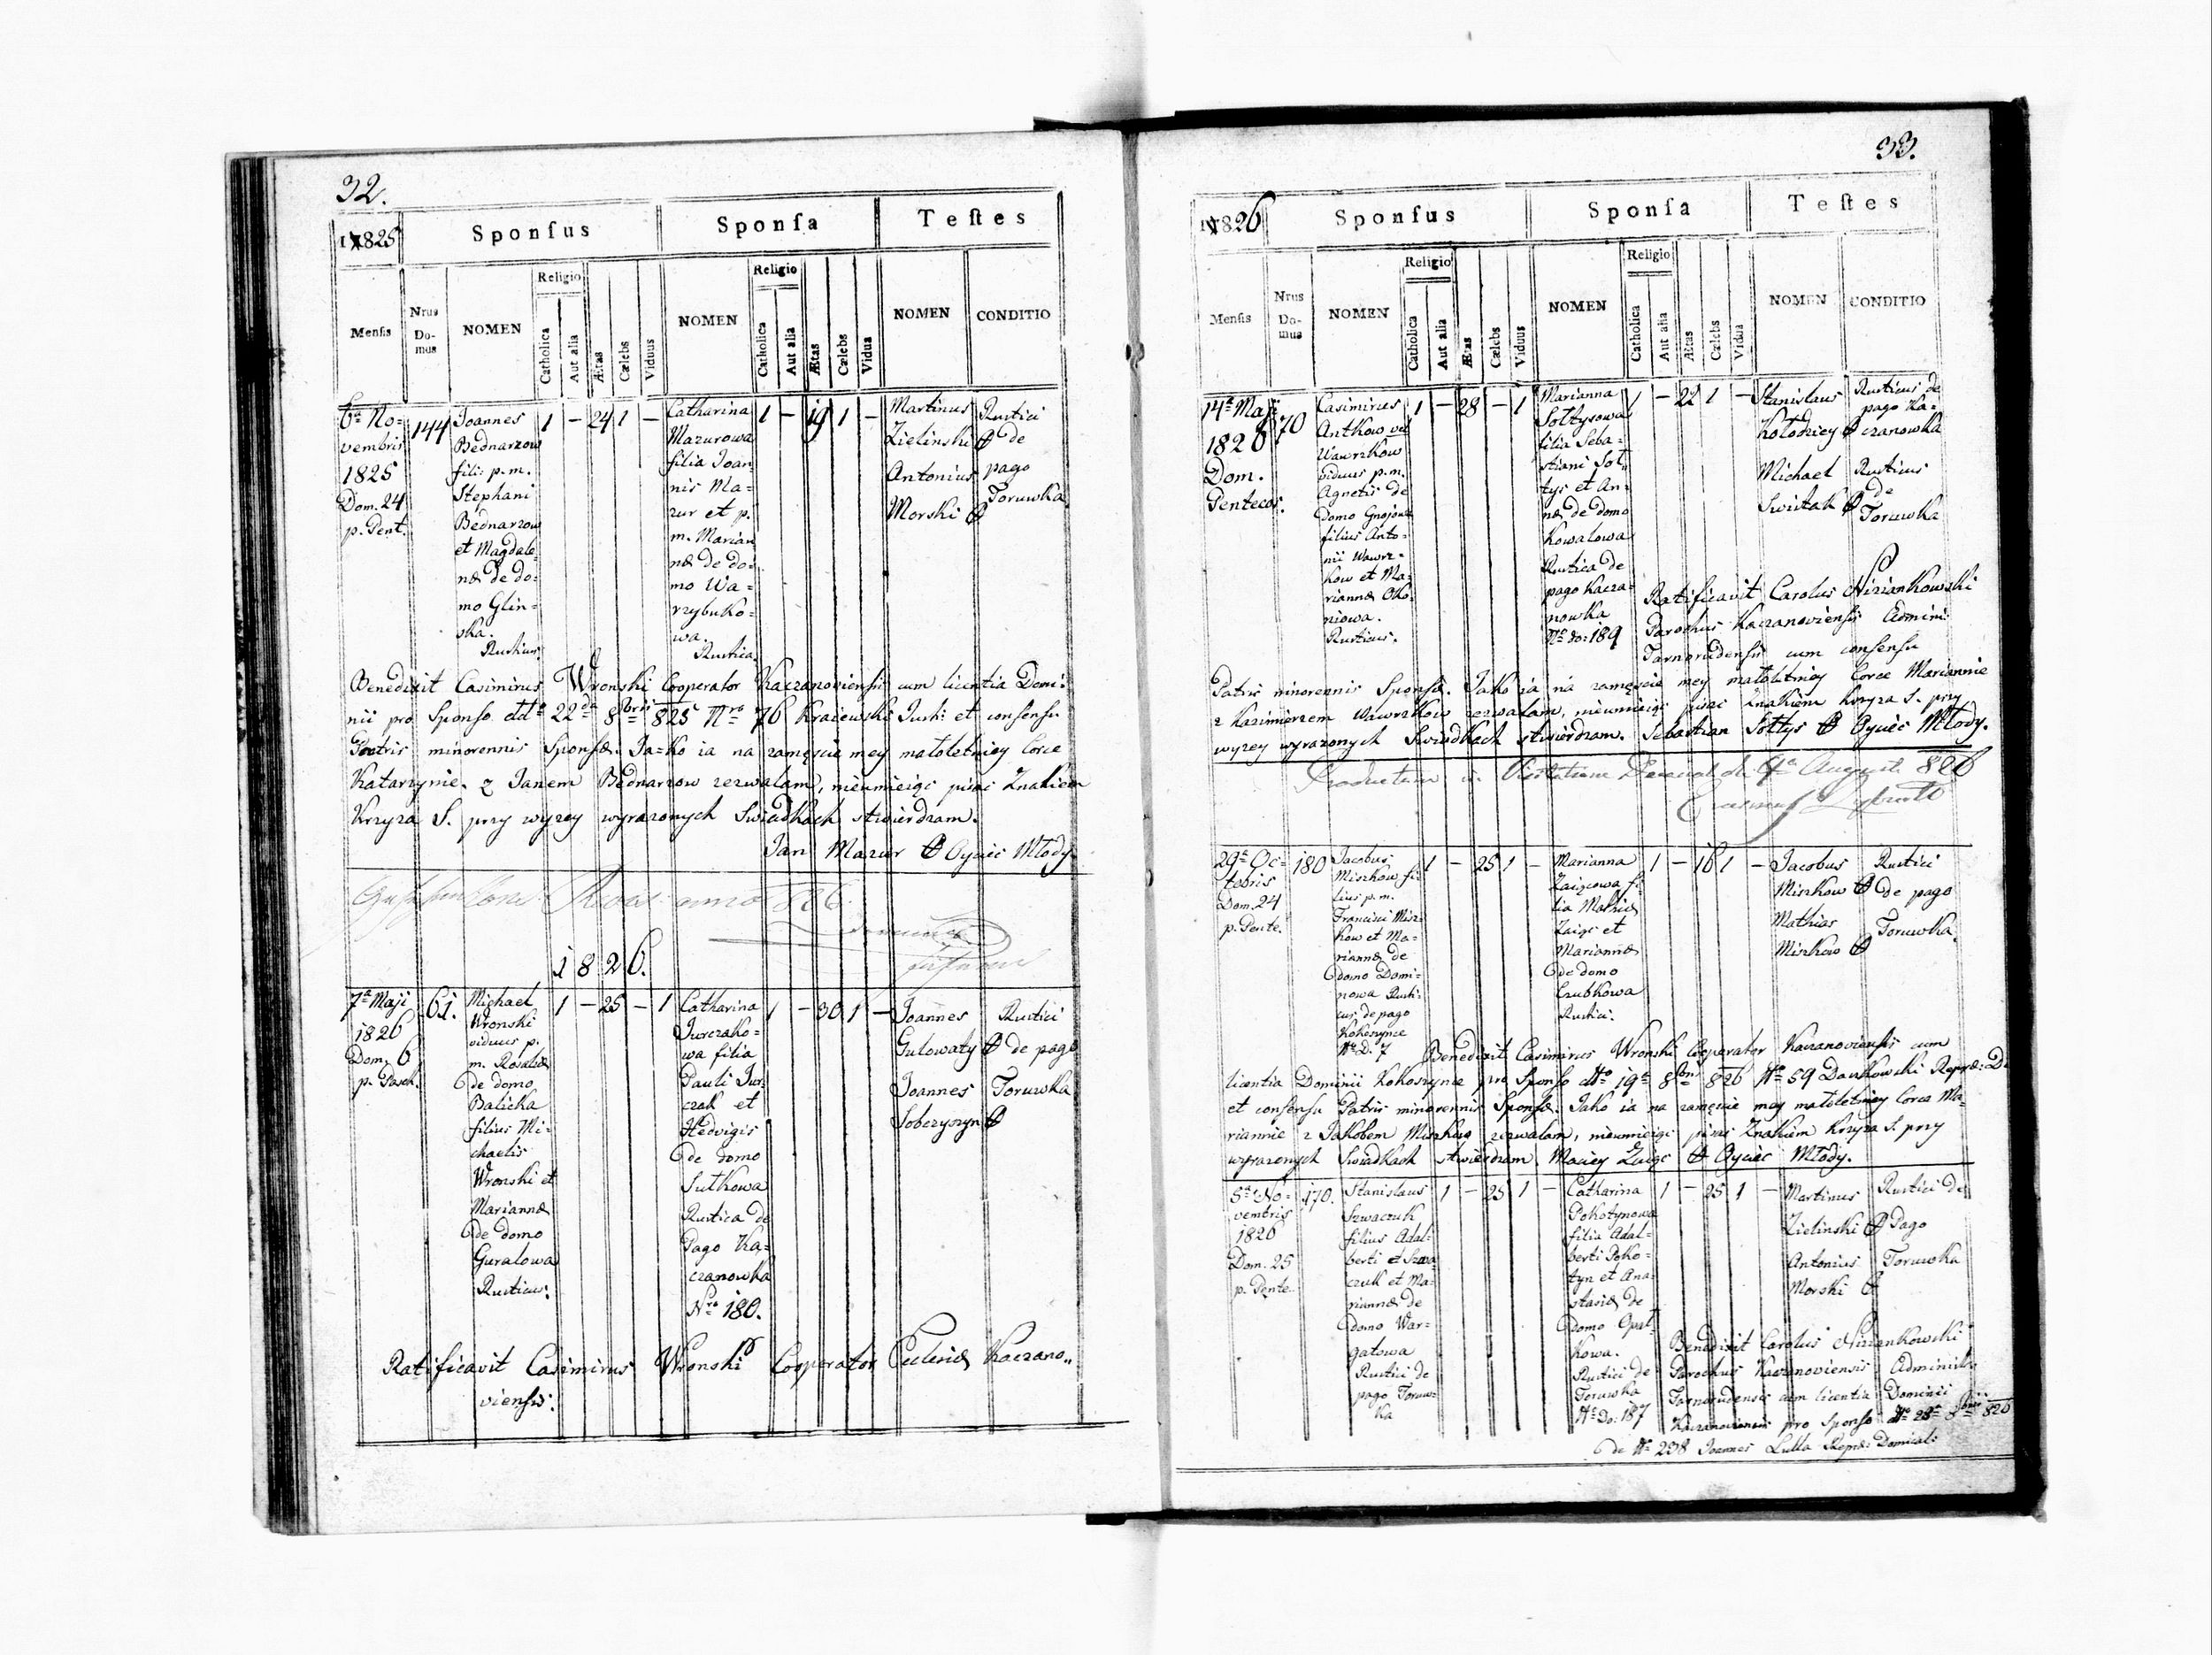 32.
1825
Sponsus Sponsa Testes
Mensis
Nrus Do- mus
NOMEN
Religio
Catholica
Aut alia
Ætas
Cælebs
Viduus
NOMEN
Religio
Catholica
Aut alia
Ætas
Cælebs
Vidua
NOMEN
CONDITIO
6ta No=
vembris
1825
Dom. 24
p. Pent.
144
Joannes
Bednarzow
fili: p.m.
Stephani
Bednarzow
et Magdale
næ de do:
mo Glin=
ska.
Rusticus.
1 – 24 1 –
Catharina
Mazurowa
filia Joan
nis Ma=
zur et p.
m. Marian
næ de do:
mo Wa=
rzybuko=
wa.
Rustica.
1 – 19 1 –
Martinus
Zielinski
Antonius
Morski
Rustici
de
pago
Toruwka
Benedixit Casimirus Wronski Cooperator Kaczanoviensis cum licentia Domi:
nii pro Sponso ddto 22da 8bris 825 Nro 76 Kraiewski Just: et consensu
Patris minorennis Sponsæ. Ja=ko ia na zamęscie mey małoletniey Corce
Katarzynie. z Janem Bednarzow zezwalam, nieumieiąc pisac Znakiem
Krzyza S. przy wyzey wyrazonych Swiadkach stwierdzam.
Jan Mazur Oyciec Młody.
anno 826
1826.
7a Maji
1826
Dom. 6
p. Pasch.
61.
Michael
Wronski
viduus p.
m. Rosaliæ
de domo
Balicka
filius Mi:
chaelis
Wronski et
Mariannæ
de domo
Guralowa
Rusticus.
1 – 25 – 1
Catharina
Jurczako=
wa filia
Pauli Jur
czak et
Hedvigis
de domo
Sutkowa
Rustica de
Pago Ka=
czanowka
Nro 180.
1 – 30 1 –
Joannes
Gulowaty
Joannes
Sobczyszyn
Rustici
de pago
Toruwka
Ratificavit Casimirus Wronski Cooperator Ecclesiæ Kaczano„
viensis.
33.
1826
Sponsus Sponsa Testes
Mensis
Nrus Do- mus
NOMEN
Religio
Catholica
Aut alia
Ætas
Cælebs
Viduus
NOMEN
Religio
Catholica
Aut alia
Ætas
Cælebs
Vidua
NOMEN
CONDITIO
14ta Maji
1826
Dom.
Pentecos.
70
Casimirus
Antkow vel
Wawrzkow
viduus p.m.
Agnetis de
domo Gnojowa
filius Anto=
nii Wawrz=
kow et Ma:
riannæ Oko:
niowa.
Rusticus.
1 – 28 – 1
Marianna
Sołtysowa
filia Seba=
stiani Soł„
tys et An:
næ de domo
Kowalowa
Rustica de
pago Kacza=
nowka
No do: 189
1 – 22 1 –
Stanislaus
Kołodziey
Michael
Switak
Rusticus de
pago Ka=
czanowka
Rusticus
de
Toruwka
Ratificavit Carolus Nizankowski
Parochus Kaczanoviensis Admini:
Tarnorudensis cum consensu
Patris minorennis Sponsæ. Jako ia na zamęscie mey małoletniey Corce Mariannie
z Kazimierzem Wawrzkow zezwalam, nieumieiąc pisac Znakiem Krzyza S. przy
wyzey wyrazonych Swiadkach stwierdzam. Sebastian Sołtys Oyciec Młody.
Productum in Visitatione Decanal. d. 9a August. 826
29a Oc=
tobris
Dom. 24
p. Pente.
180
Jacobus
Miszkow fi:
lius p.m.
Francisci Misz:
kow et Ma=
riannæ de
domo Domi=
nowa Rusti:
cus. de pago
Kokoszynce
No D. 7
1 – 25 1 –
Marianna
Zaiącowa fi
lia Mathiæ
Zaiąc et
Mariannæ
de domo
Czubkowa
Rustici.
1 – 16 1 –
Jacobus
Miszkow
Mathias
Miszkow
Rustici
de pago
Toruwka.
Benedixit Casimirus Wronski Cooperator Kaczanoviensis cum
licentia Dominii Kokoszynce pro Sponso ddto 19a 8bris 826 No 59 Dankowski Repræ: D
et consensu Patris minorennis Sponsæ. Jako ia na zamęscie mey małoletniey Corce Ma=
riannie z Jakobem Miszkow zezwalam, nieumieiąc pisac Znakiem Krzyza S. przy
wyrazonych Swiadkach stwierdzam. Maciey Zaiąc Oyciec Młody.
5ta No=
vembris
1826
Dom. 25
p. Pente.
170.
Stanislaus
Szwaczuk
filius Adal:
berti et Szwa
czuk et Ma:
riannæ de
domo War=
gatowa
Rustici de
pago Toruw=
ka
1 – 25 1 –
Catharina
Pokotynowa
filia Adal=
berti Poko=
tyn et Ana:
stasiæ de
domo Opał
kowa.
Rustici de
Toruwka
No Do: 187
1 – 25 1 –
Martinus
Zielinski
Antonius
Morski
Rustici de
Pago
Toruwka
Benedixit Carolus Nizankowski
Parochus Kaczanoviensis Administ:
Tarnorudensis cum licentia Dominii
Kaczanoviensis pro Sponso ddto 28a 8bris 826
de No 238 Joannes Lulla Repræ: Dominal: